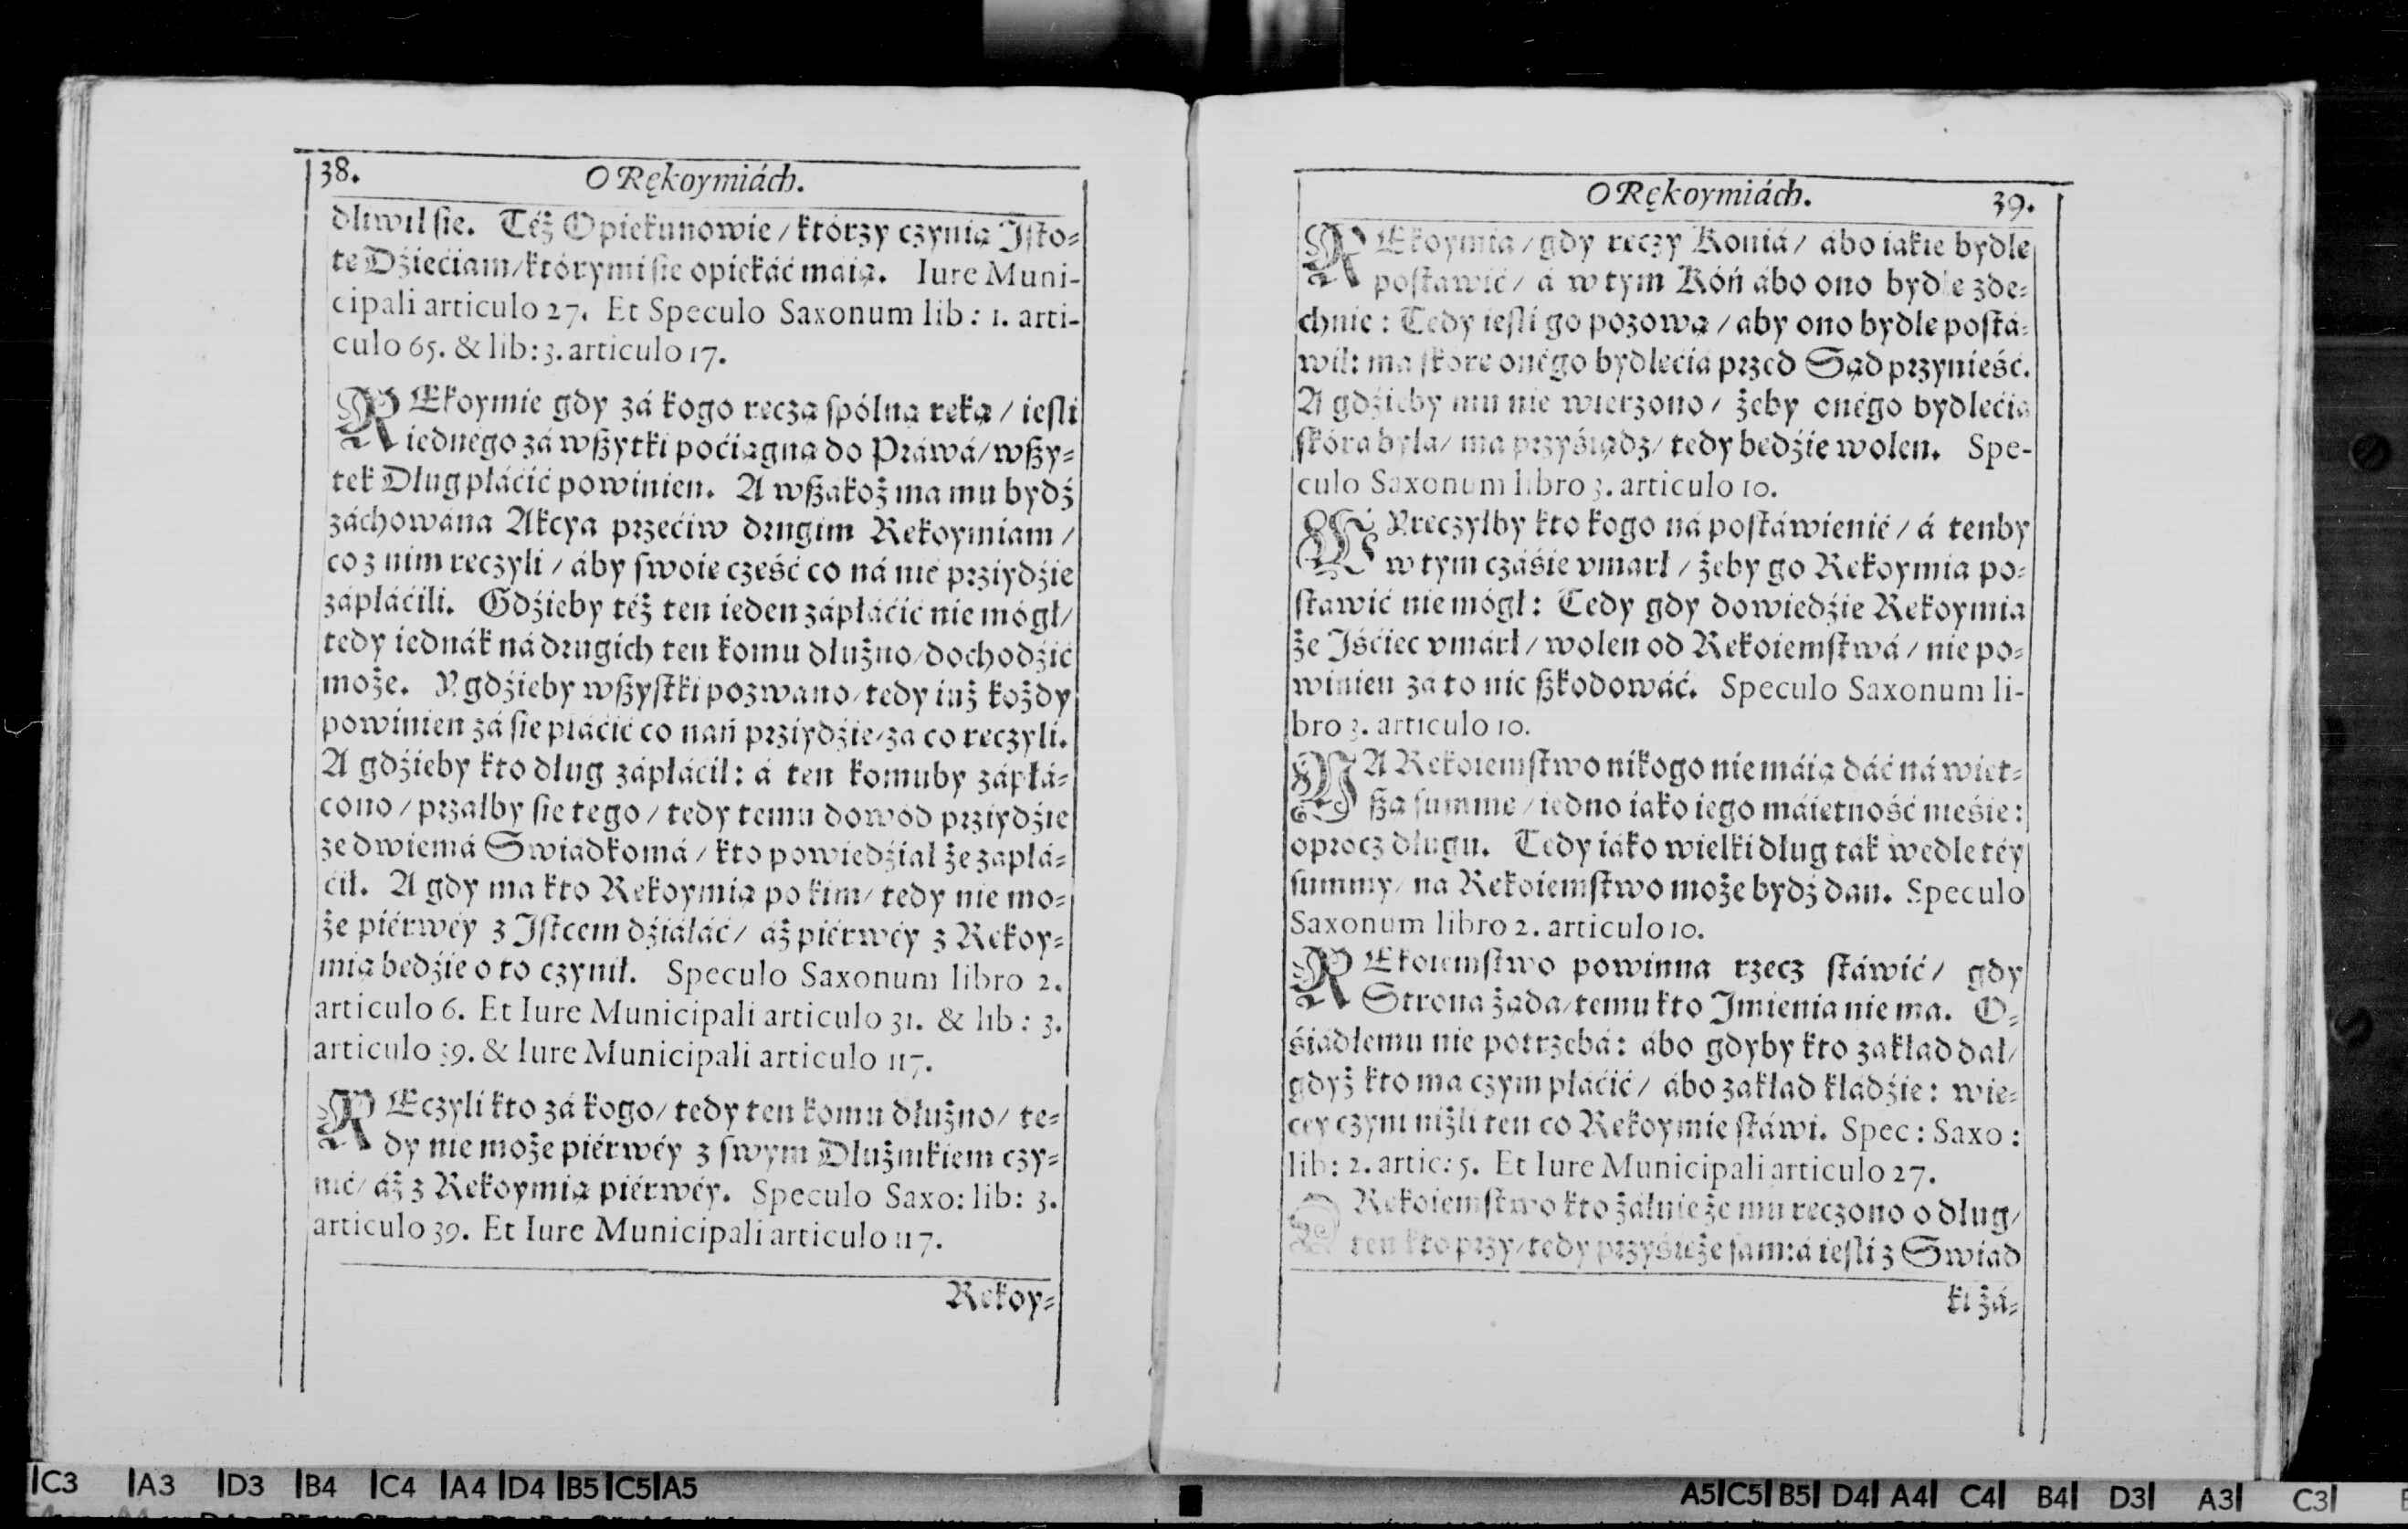 38. O Rękoymiách.
dliwił ſie. Też Opiekunowie / którzy czynią Iſto-
te Dźiećiam / którymi ſie opiekáć máią. Iure Muni-
cipali articulo 27. Et Speculo Saxonum lib: 1. arti-
culo 65. & lib: 3. articulo 17.
REkoymie gdy zá kogo reczą ſpólną reką / ieſli
iednégo zá wßytki poćiągną do Práwá / wßy-
tek Dług płáćić powinien. A wßakoż ma mu bydź
záchowána Akcya przećiw drugim Rekoymiam /
co z nim reczyli / áby ſwoie cześć co ná nie prziydźie
zápłáćili. Gdźieby też ten ieden zápłáćić nie mógł /
tedy iednák ná drugich ten komu dłużno / dochodźić
może. Y gdźieby wßyſtki pozwano / tedy iuż kożdy
powinien zá ſie płáćić co nań prziydźie / za co reczyli.
A gdźieby kto dług zápłáćił: á ten komuby zápłá-
cono / przałby ſie tego / tedy temu dowód prziydźie
ze dwiemá Swiádkomá / kto powiedźiał że zapłá-
ćił. A gdy ma kto Rekoymią po kim / tedy nie mo-
że piérwéy z Iſtcem dźiáłáć / áż piérwéy z Rekoy-
mią bedźie o to czynił. Speculo Saxonum libro 2.
articulo 6. Et Iure Municipali articulo 31. & lib: 3.
articulo 39. & Iure Municipali articulo 117.
REczyli kto zá kogo / tedy ten komu dłużno / te-
dy nie może piérwéy z ſwym Dłużnikiem czy-
nić / áż z Rekoymią piérwéy. Speculo Saxo: lib: 3.
articulo 39. Et Iure Municipali articulo 117.
Rekoy-
O Rękoymiách. 39.
REkoymia / gdy reczy Koniá / ábo iakie bydle
poſtawić / á w tym Kóń ábo ono bydle zde-
chnie: Tedy ieſli go pozową / aby ono bydle poſtá-
wił: ma ſkóre onégo bydlećiá przed Sąd przynieść.
A gdźieby mu nie wierzono / żeby onégo bydlećia
ſkóra była / ma przyśiądz / tedy bedźie wolen. Spe-
culo Saxonum libro 3. articulo 10.
WYreczyłby kto kogo ná poſtáwienié / á tenby
w tym czáśie vmarł / żeby go Rekoymia po-
ſtawić nie mógł: Tedy gdy dowiedźie Rekoymia
że Iśćiec vmárł / wolen od Rekoiemſtwá / nie po-
winien zá to nic ßkodowáć. Speculo Saxonum li-
bro 3. articulo 10.
NA Rekoiemſtwo nikogo nie máią dáć ná wiet-
ßą ſumme / iedno iako iego máietność nieśie:
oprocz długu. Tedy iáko wielki dług ták wedle téy
ſummy / na Rekoiemſtwo może bydź dan. Speculo
Saxonum libro 2. articulo 10.
REkoiemſtwo powinna rzecz ſtáwić / gdy
Strona żąda / temu kto Imienia nie ma. O-
śiádłemu nie potrzebá: ábo gdyby kto zakład dał /
gdyż kto ma czym płáćić / ábo zakład kłádźie: wie-
cey czyni niżli ten co Rekoymie ſtáwi. Spec: Saxo:
lib: 2. artic: 5. Et Iure Municipali articulo 27.
O Rekoiemſtwo kto żáłuie że mu reczono o dług /
ten kto przy / tedy przyśieże ſam: á ieſli z Swiad
ki żá-
C3 A3 D3 B4 C4 A4 D4 B5 C5 A5
A5 C5 B5 D4 A4 C4 B4 D3 A3 C3